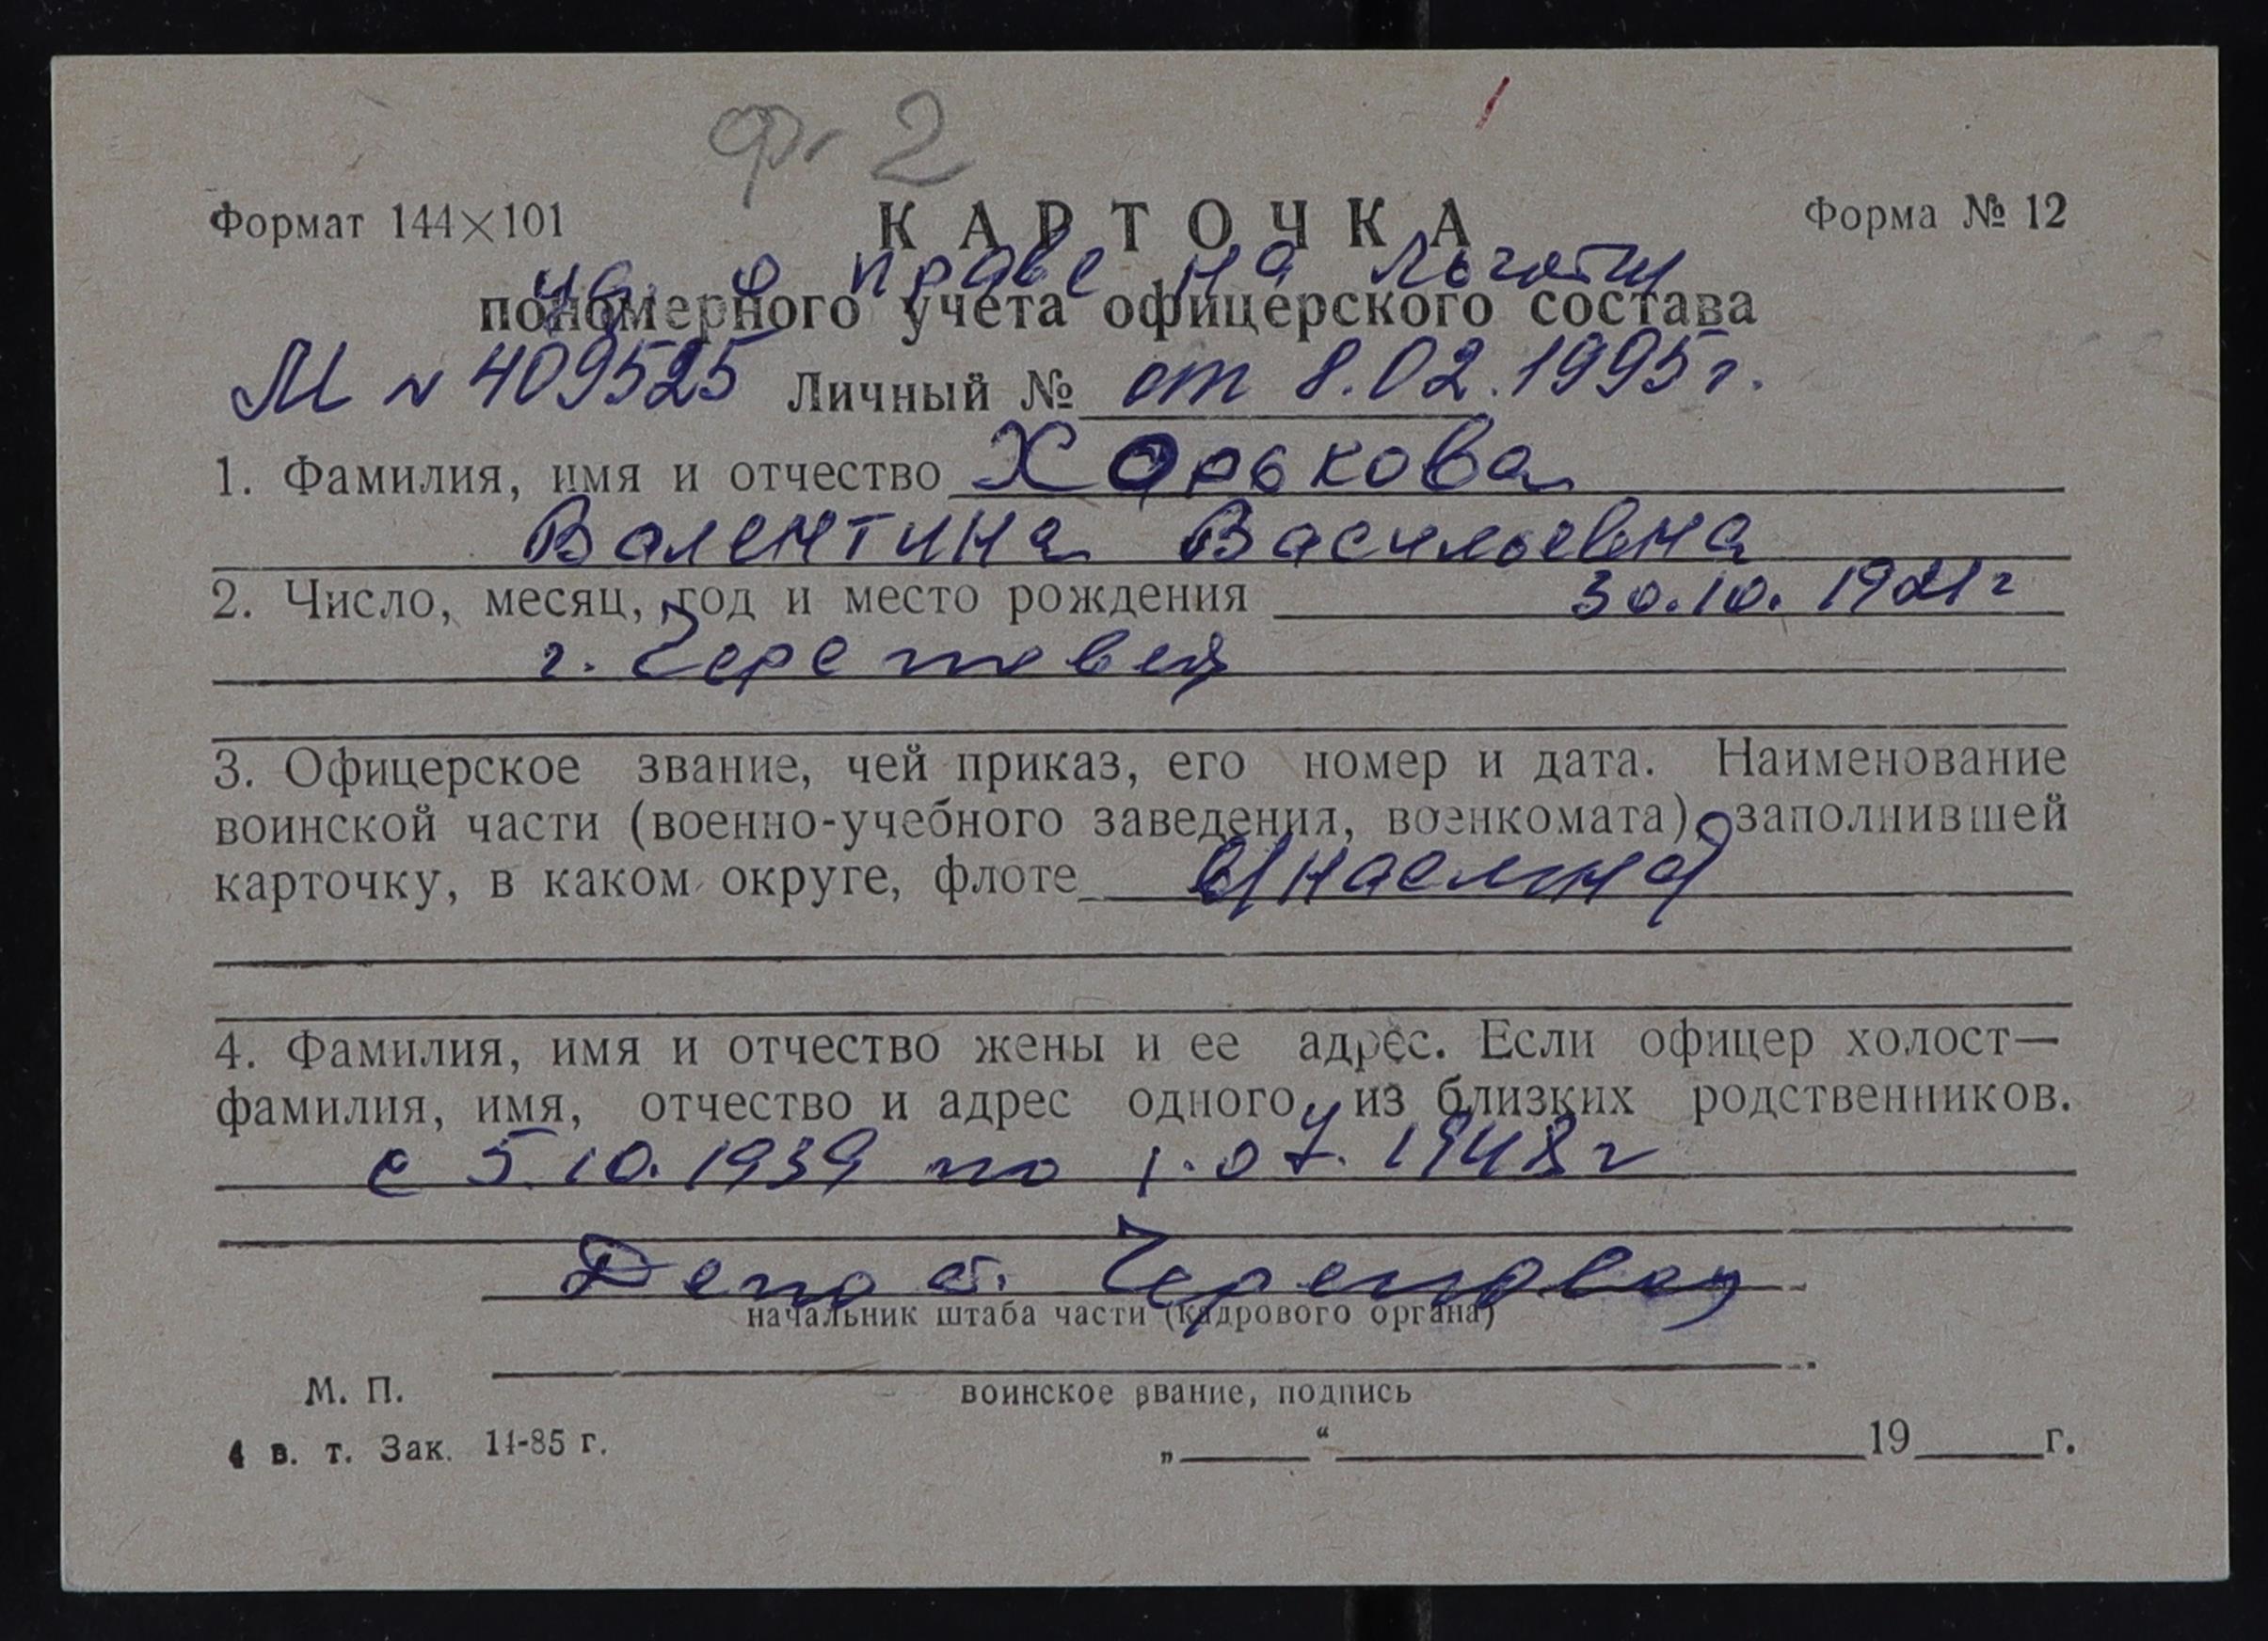 ф 2
Формат 144×101 КАРТОЧКА Форма № 12
уд. о праве на льготы
пономерного учета офицерского состава
М N 409525 Личный № от 8.02.1995г.
1. Фамилия, имя и отчество Харькова
Валентина Васильевна
2. Число, месяц, год и место рождения 30.10.1921г
г. Череповец
3. Офицерское звание, чей приказ, его номер и дата. Наименование
воинской части (военно-учебного заведения, военкомата), заполнившей
карточку, в каком округе, флоте
4. Фамилия, имя и отчество жены и ее адрес. Если офицер холост—
фамилия, имя, отчество и адрес одного из близких родственников.
с 5.10.1939 по 1.07.1948г
Депо ст. Череповец
начальник штаба части (кадрового органа)
М. П.
воинское звание, подпись
4 в. т. Зак. 14-85 г. „ “ 19 г.